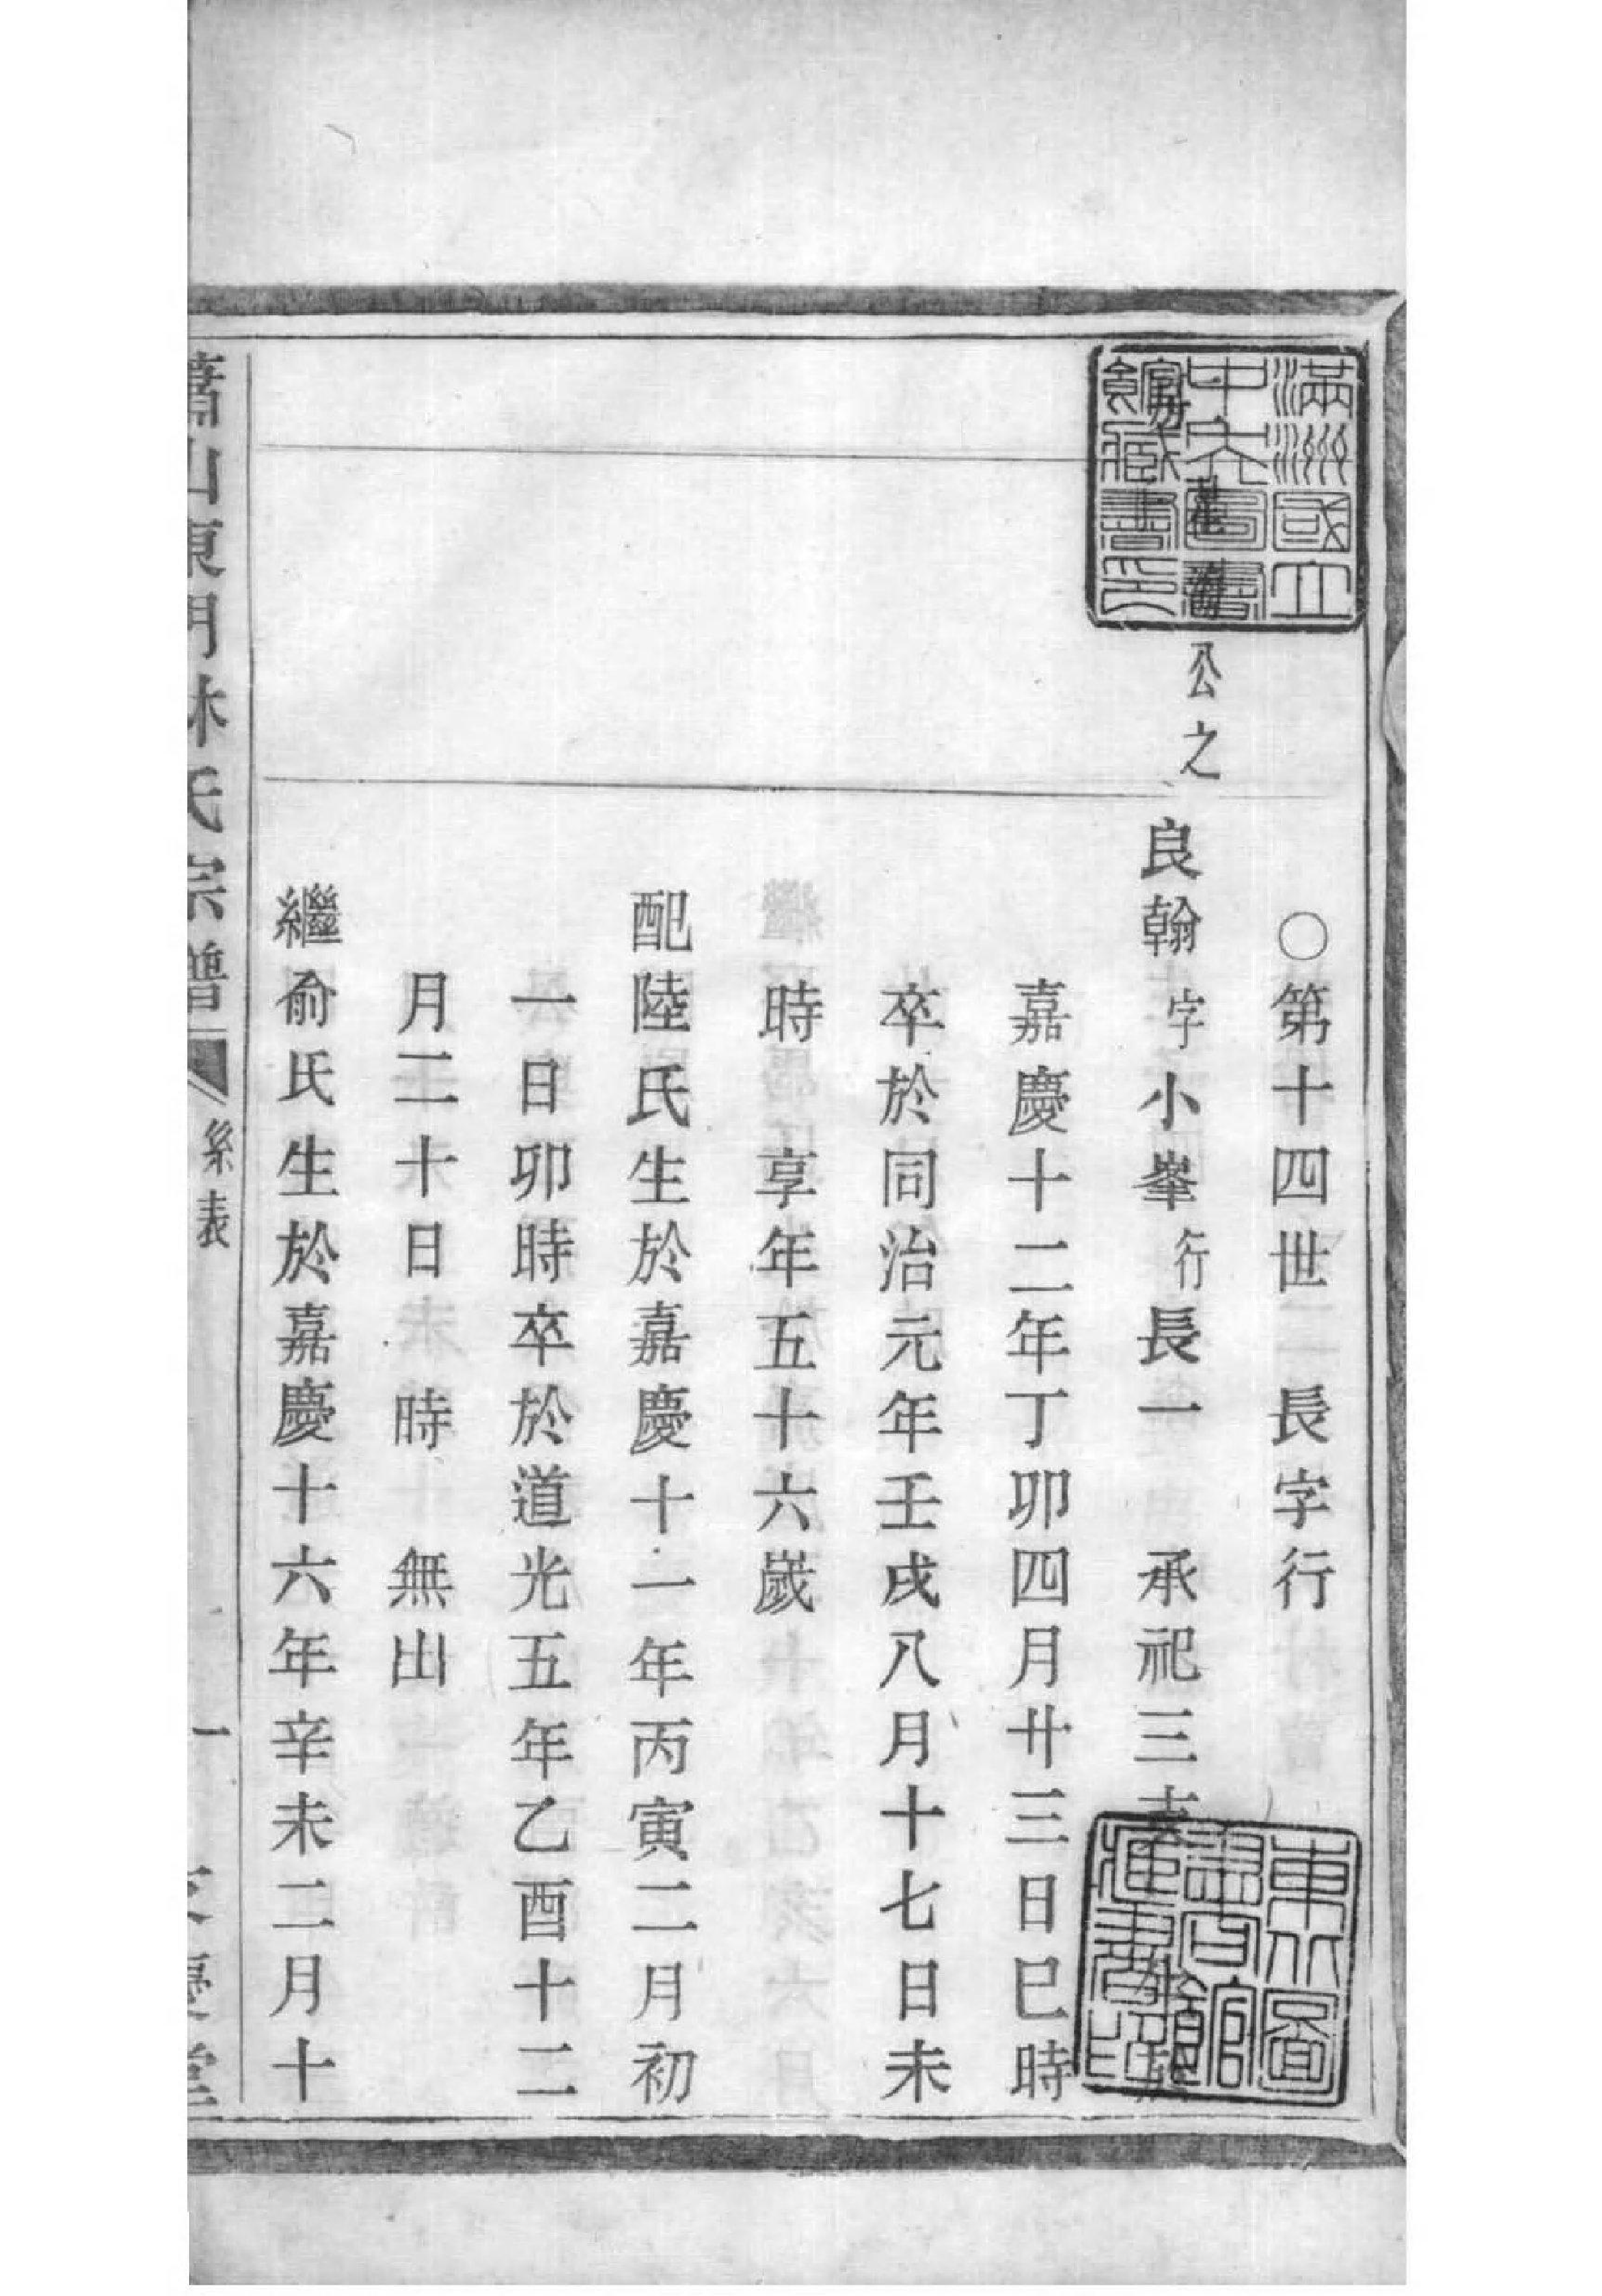 滿洲國立
中央圖書
館藏書印
公之
○第十四世 長字行
良翰 字小峯 行長一 承祀三
嘉慶十二年丁卯四月廿三日巳時
卒於同治元年壬戌八月十七日未
時 享年五十六歲
配陸氏生於嘉慶十一年丙寅二月初
一日卯時卒於道光五年乙酉十二
月二十日 時 無出
繼俞氏生於嘉慶十六年辛未二月十
東北圖
書館
藏書印
蕭山東門林氏宗譜 系表 一